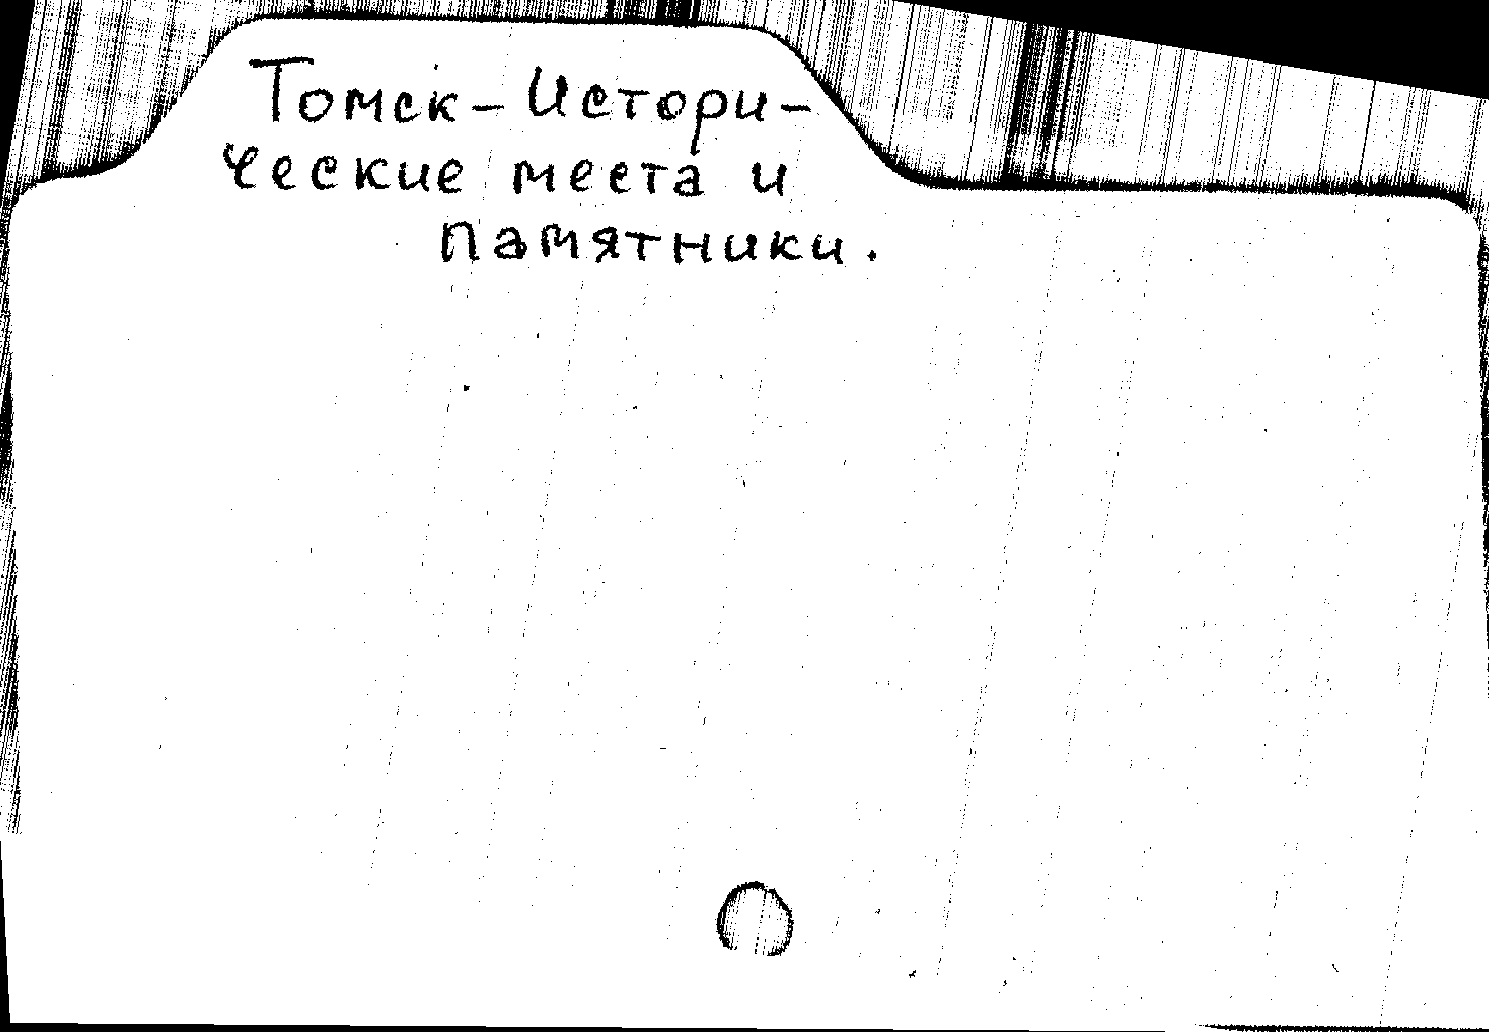 Томск – Истори-
ческие места и
памятники.